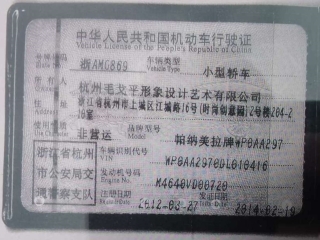 中华人民共和国机动车行驶证
Vehicle License of the People's Republic of China
号牌号码 浙AMG869 车辆类型 Vehicle Type 小型轿车
所有人 杭州毛戈平形象设计艺术有限公司
住址 浙江省杭州市上城区江城路16号(时尚创意园)2号楼204-2
10室
使用性质 非营运 品牌型号 帕纳美拉牌WP0AA297
浙江省杭州 车辆识别代号 VIN WP0AA2970DL010416
市公安局交 发动机号码 Engine No. M4640VD00720
通警察支队 注册日期 2012-03-27 2014-02-19